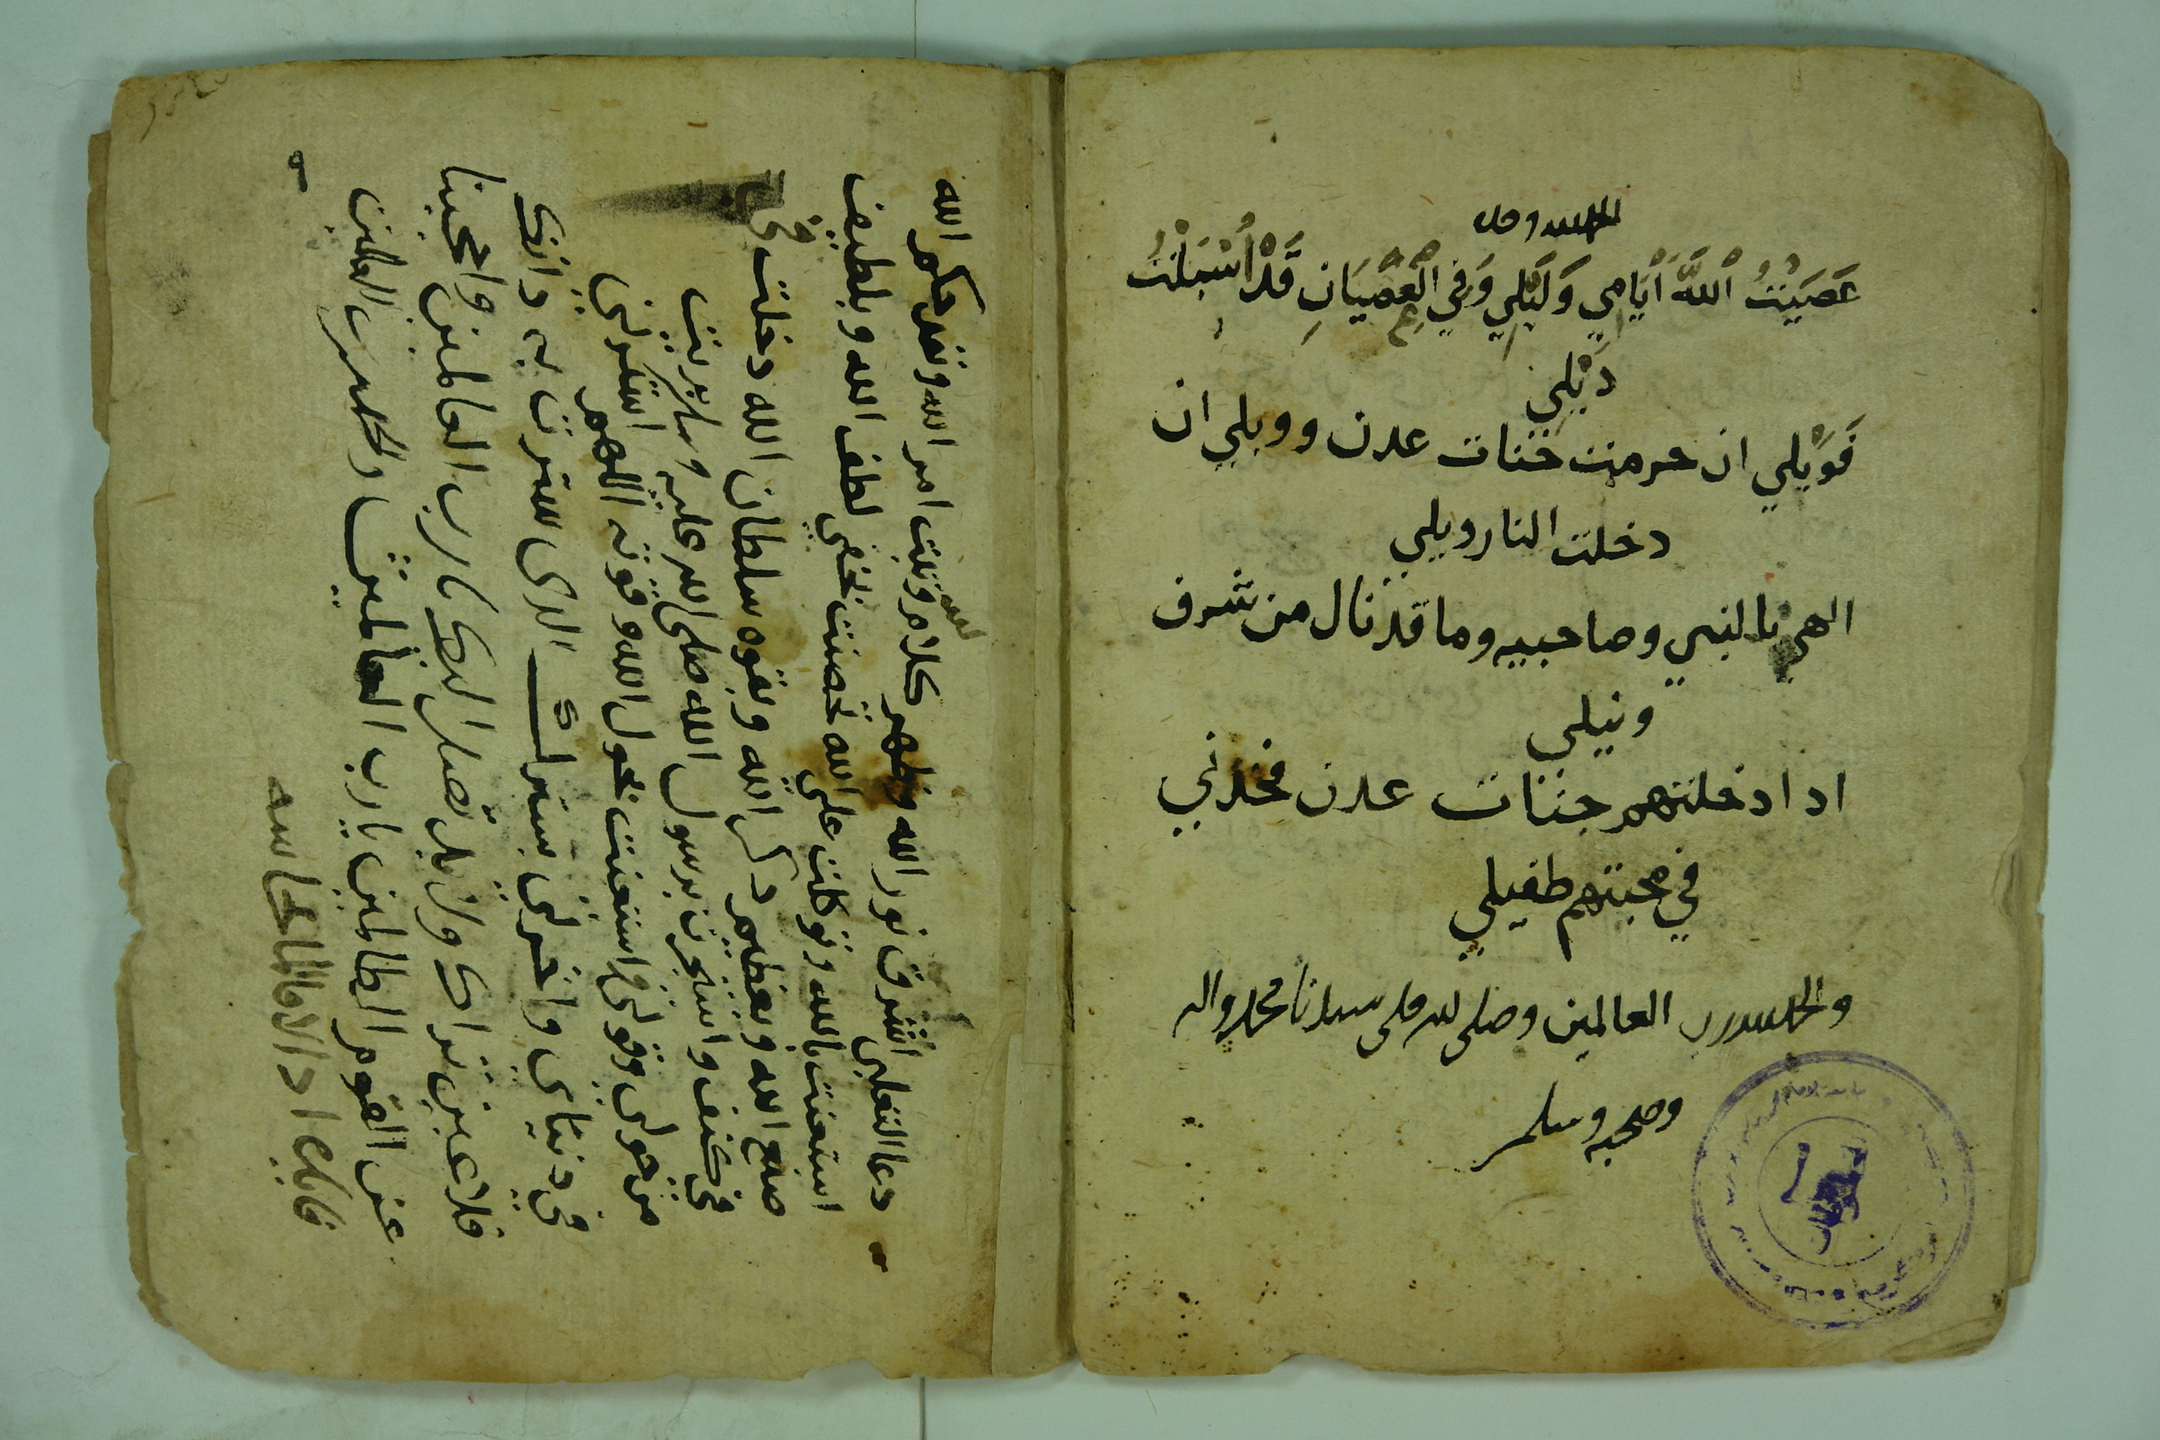 الحمد لله وحده
عَصَيْتُ اللَّهَ أَيَّامِي وَلَيْلِي وَفِي الْعِصْيَانِ قَدْ أَسْبَلْتُ
ذَيْلِي
فَوَيْلِي ان حرمت جنات عدن وويلي ان
دخلت النار ويلي
الهي بالنبي وصاحبيه وما قد نال من شرف
ونيلي
اذا ادخلتهم جنات عدن فخذني
في محبتهم طفيلي
والحمد لله رب العالمين وصلى الله على سيدنا محمد واله
وصحبه وسلم
دعا التعلبي اشرق نور الله وظهر كلام الله وثبت امر الله ونفذ حكم الله
استعنت بالله وتوكلت على الله تحصنت بخفي لطف الله وبلطيف
صنع الله وبعظيم ذكر الله وبقوه سلطان الله دخلت في
في كنف الله واستجرت برسول الله صلى الله عليه وسلم برئت
من حولي وقوتي واستعنت بحول الله وقوته اللهم استرني
في دنياي واخرتي بسترك الذي سترت به ذاتك
فلا عين تراك ولا يد تصل اليك يا رب العالمين واحجبنا
عن القوم الظالمين يا رب العالمين والحمد لله رب العالمين